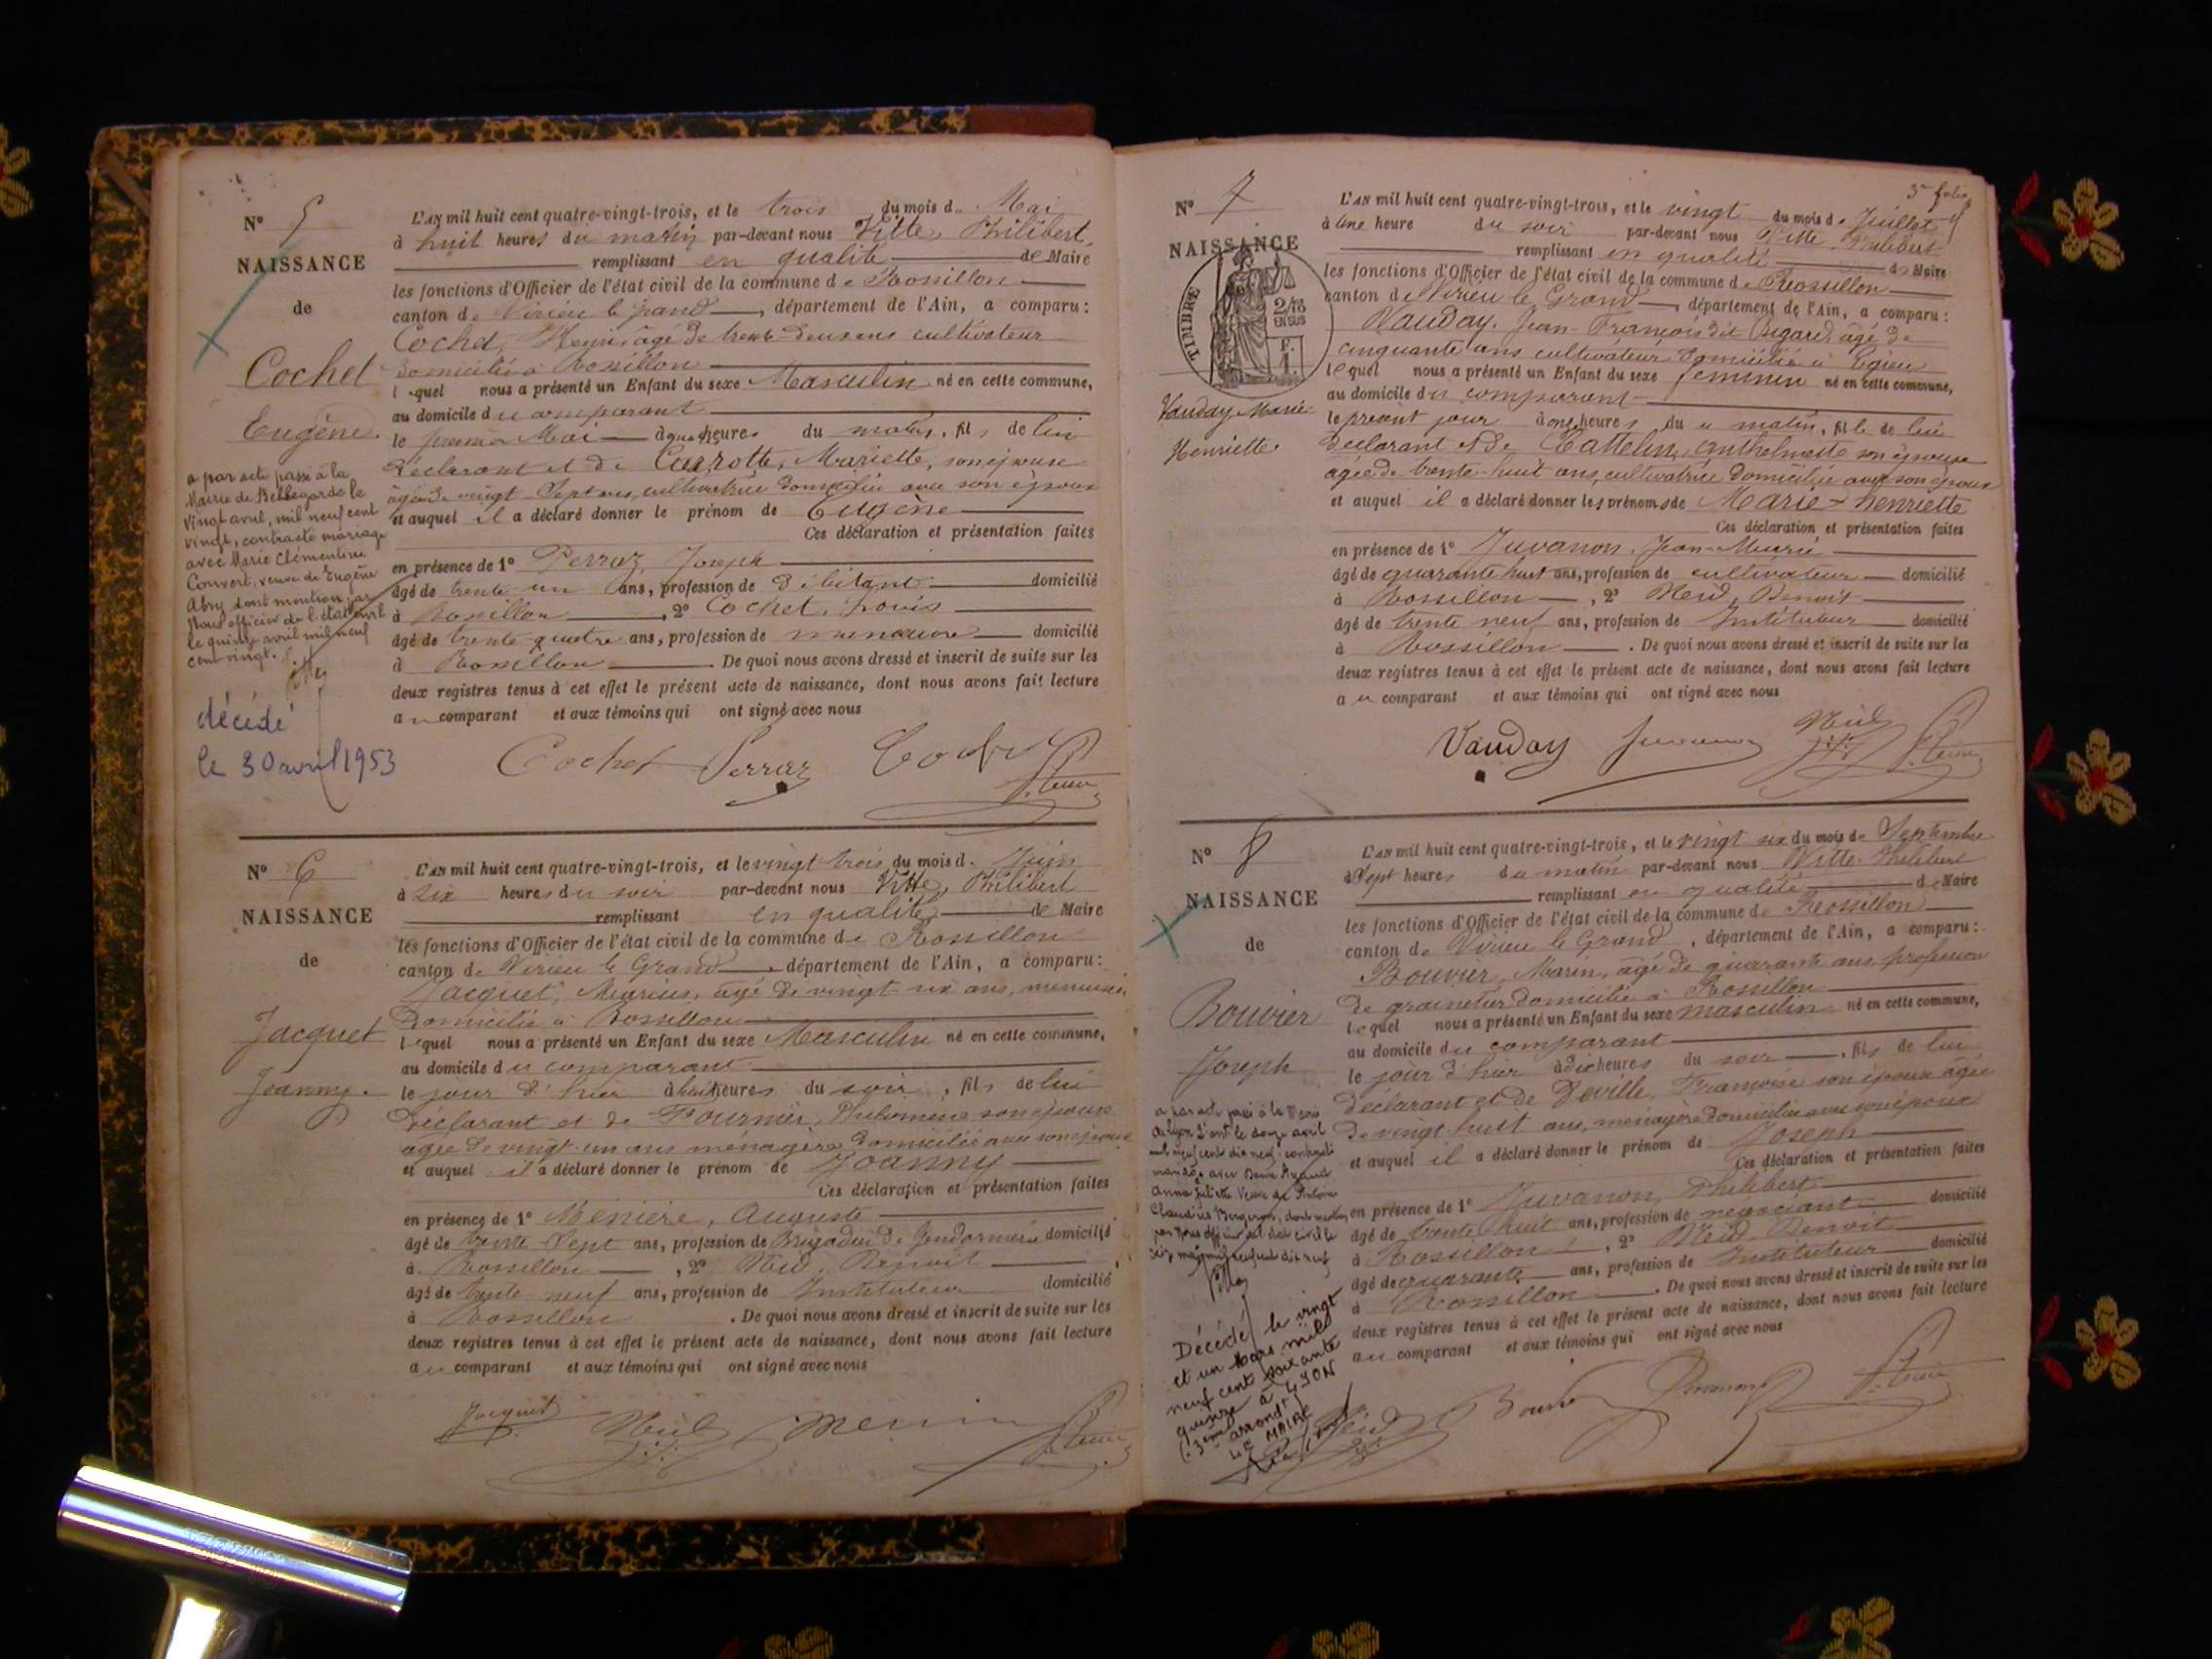 N° 5
NAISSANCE
de
Cochet
Eugène.
a par acte passé à la
Mairie de Bellegarde le
vingt avril, mil neuf cent
vingt, contracté mariage
avec Marie Clémentine
Convert, veuve de Eugène
Abry dont mention par
Nous officier de l'état civil
le quinze avril mil neuf
cent vingt.
décédé
le 30 avril 1953
L'AN mil huit cent quatre-vingt-trois, et le trois du mois de Mai
à huit heures du matin par-devant nous Vitte, Philibert,
remplissant en qualité de Maire
les fonctions d'Officier de l'état civil de la commune de Rossillon
canton de Virieu le grand, département de l'Ain, a comparu:
Cochet, Henri âgé de trente-deux ans cultivateur
domicilié à Rossillon
lequel nous a présenté un Enfant du sexe Masculin né en cette commune,
au domicile du comparant
le premier Mai à heures du matin, fils de lui
déclarant et de Mariette, son épouse
âgée de vingt Sept ans, cultivatrice domiciliée avec son époux
et auquel il a déclaré donner le prénom de Eugène
Ces déclaration et présentation faites
en présence de 1° Perraz, Joseph
âgé de trente un ans, profession de débitant domicilié
à Rossillon, 2° Cochet, Louis
âgé de trente quatre ans, profession de manœuvre domicilié
à Rossillon. De quoi nous avons dressé et inscrit de suite sur les
deux registres tenus à cet effet le présent acte de naissance, dont nous avons fait lecture
au comparant et aux témoins qui ont signé avec nous
Cochet Perraz Cochet
N° 6
NAISSANCE
de
Jacquet
Joanny.
L'AN mil huit cent quatre-vingt-trois, et le vingt trois du mois de Juin
à six heures du soir par-devant nous Vitte, Philibert
remplissant en qualité de Maire
les fonctions d'Officier de l'état civil de la commune de Rossillon
canton de Virieu le Grand, département de l'Ain, a comparu:
Jacquet, Marius, âgé de vingt six ans, menuisier
domicilié à Rossillon
lequel nous a présenté un Enfant du sexe Masculin né en cette commune,
au domicile du comparant
le jour d'hier à huit heures du soir, fils de lui
déclarant et de Fournier, Philomène son épouse
âgée de vingt-un ans ménagère domiciliée avec son époux
et auquel il a déclaré donner le prénom de Joanny
Ces déclaration et présentation faites
en présence de 1° Menière, Auguste
âgé de trente-Sept ans, profession de Brigadier de Gendarmerie domicilié
à Rossillon, 2° Neid, Benoit
âgé de trente-neuf ans, profession de Instituteur domicilié
à Rossillon. De quoi nous avons dressé et inscrit de suite sur les
deux registres tenus à cet effet le présent acte de naissance, dont nous avons fait lecture
au comparant et aux témoins qui ont signé avec nous
Jacquet
3e folio
N° 7
NAISSANCE
TIMBRE
Vauday Marie-
Henriette
L'AN mil huit cent quatre-vingt-trois, et le vingt du mois de Juillet
à une heure du soir par-devant nous Vitte Philibert
remplissant en qualité de Maire
les fonctions d'Officier de l'état civil de la commune de Rossillon
canton de Virieu le Grand, département de l'Ain, a comparu:
Vauday, Jean-François dit âgé de
cinquante ans cultivateur domicilié à Egieu
lequel nous a présenté un Enfant du sexe féminin né en cette commune,
au domicile du comparant
le présent jour à onze heures du matin, fille de lui
déclarant et de Anthelmette son épouse
âgée de trente-huit ans, cultivatrice domiciliée avec son époux
et auquel il a déclaré donner les prénoms de Marie-henriette
Ces déclaration et présentation faites
en présence de 1° Juvanon, Jean-Marie
âgé de quarante huit ans, profession de cultivateur domicilié
à Rossillon, 2° Neid, Benoit
âgé de trente neuf ans, profession de Instituteur domicilié
à Rossillon. De quoi nous avons dressé et inscrit de suite sur les
deux registres tenus à cet effet le présent acte de naissance, dont nous avons fait lecture
au comparant et aux témoins qui ont signé avec nous
Vauday
N° 8
NAISSANCE
de
Bouvier
Joseph
Décédé le vingt
et un Mars mil
neuf cent soixante
quinze à LYON
(3ème arrondt)
LE MAIRE
L'AN mil huit cent quatre-vingt-trois, et le vingt six du mois de Septembre
à Sept heures du matin par-devant nous Vitte Philibert
remplissant en qualité de Maire
les fonctions d'Officier de l'état civil de la commune de Rossillon
canton de Virieu le Grand, département de l'Ain, a comparu:
Bouvier, Marin, âgé de quarante ans, profession
de grainetier domicilié à Rossillon
lequel nous a présenté un Enfant du sexe masculin né en cette commune,
au domicile du comparant
le jour d'hier à dix heures du soir, fils de lui
déclarant et de Deville, Françoise son épouse âgée
de vingt huit ans, ménagère domiciliée avec son époux
et auquel il a déclaré donner le prénom de Joseph
Ces déclaration et présentation faites
en présence de 1° Juvanon, Philibert
âgé de trente huit ans, profession de négociant domicilié
à Rossillon, 2° Neid, Benoit
âgé de quarante ans, profession de Instituteur domicilié
à Rossillon. De quoi nous avons dressé et inscrit de suite sur les
deux registres tenus à cet effet le présent acte de naissance, dont nous avons fait lecture
au comparant et aux témoins qui ont signé avec nous